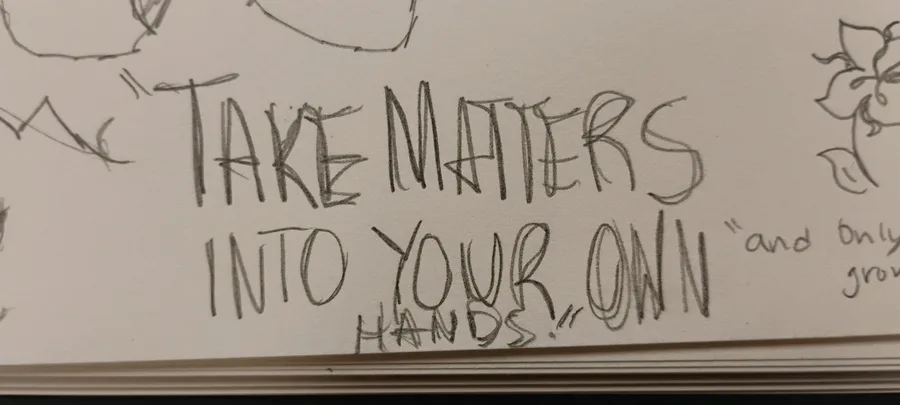 "TAKE MATTERS
INTO YOUR OWN
HANDS."
"and Only